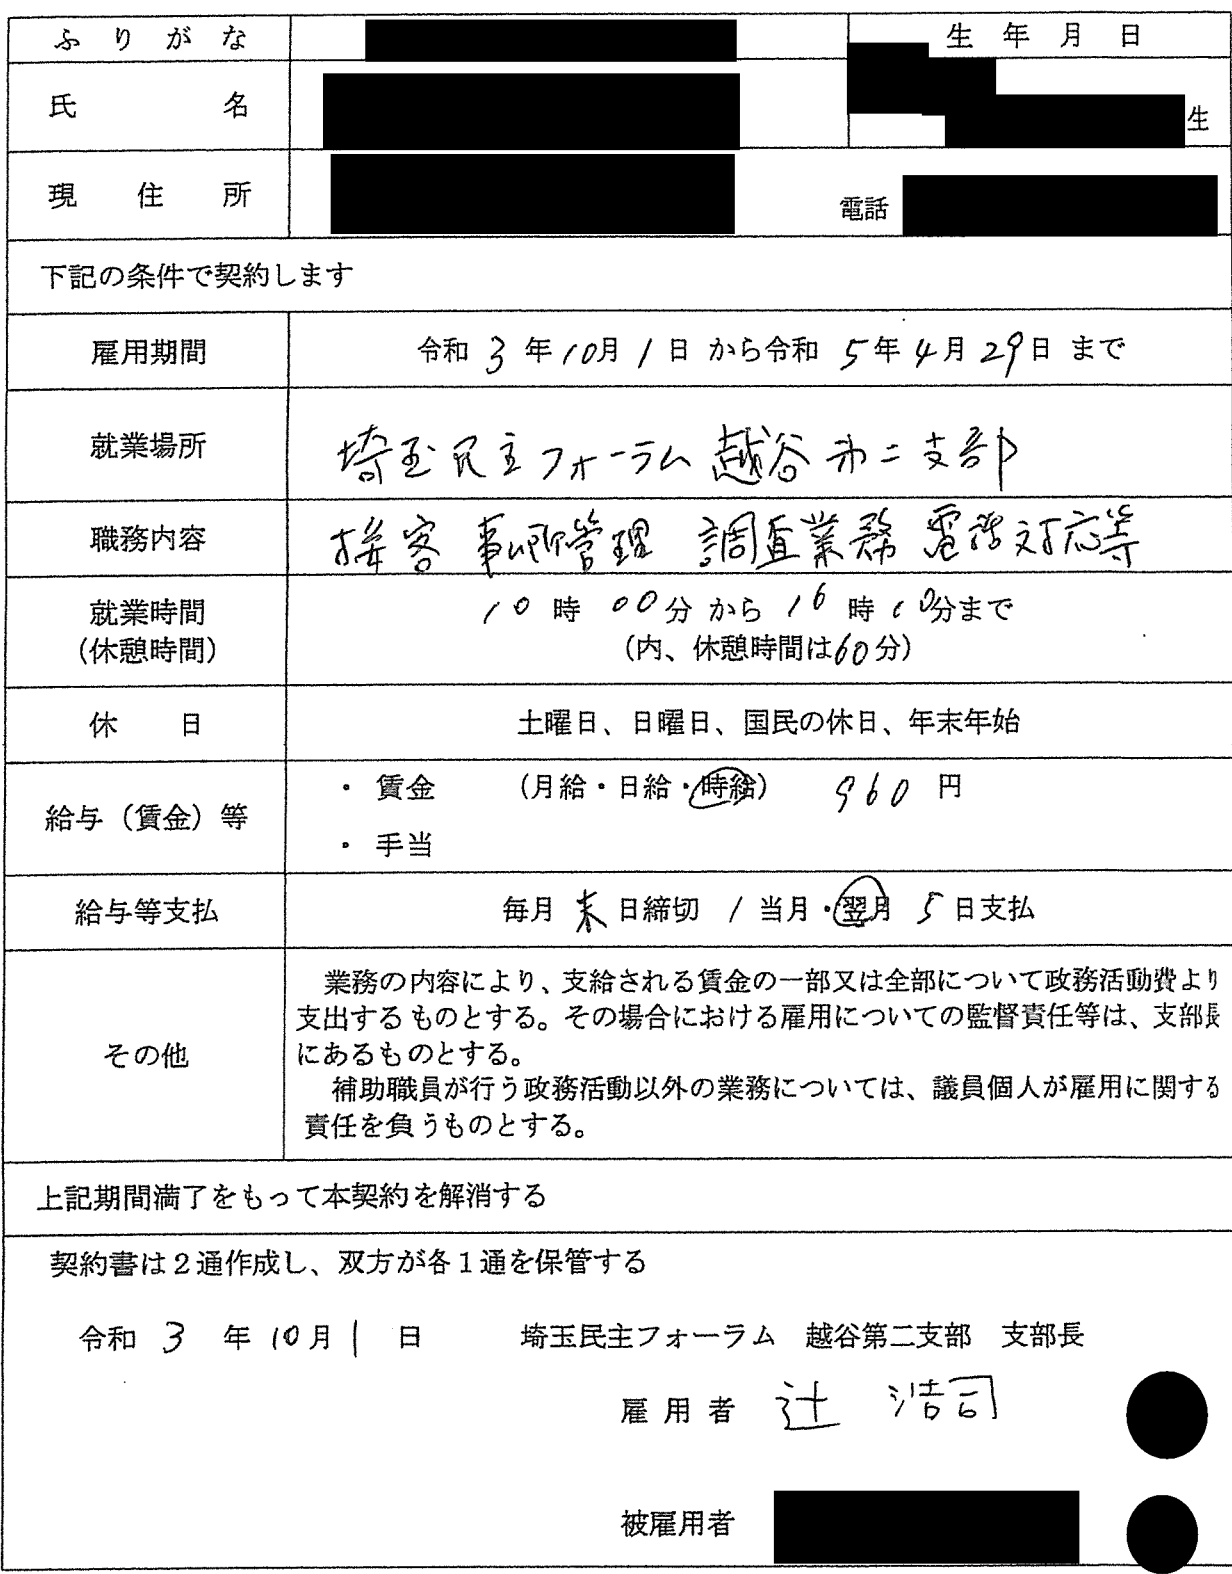 ふりがな
生年月日
氏名
生
現住所
電話
下記の条件で契約します
雇用期間 令和 3 年 10月 1 日 から令和 5 年 4 月 29日 まで
就業場所 埼玉民主フォーラム 越谷オ二支部
職務内容 接客 事ム所管理 調査業務 電話対応等
就業時間 10 時 00分 から 16 時 10分まで
(休憩時間) (内、休憩時間は60分)
休日 土曜日、日曜日、国民の休日、年末年始
給与(賃金)等
・ 賃金 (月給・日給・時給) 960 円
・ 手当
給与等支払 毎月 末 日締切 / 当月・翌月 5 日支払
その他
業務の内容により、支給される賃金の一部又は全部について政務活動費より
支出するものとする。その場合における雇用についての監督責任等は、支部長
にあるものとする。
補助職員が行う政務活動以外の業務については、議員個人が雇用に関する
責任を負うものとする。
上記期間満了をもって本契約を解消する
契約書は2通作成し、双方が各1通を保管する
令和 3 年 10月 1 日 埼玉民主フォーラム 越谷第二支部 支部長
雇用者 辻 浩司
被雇用者